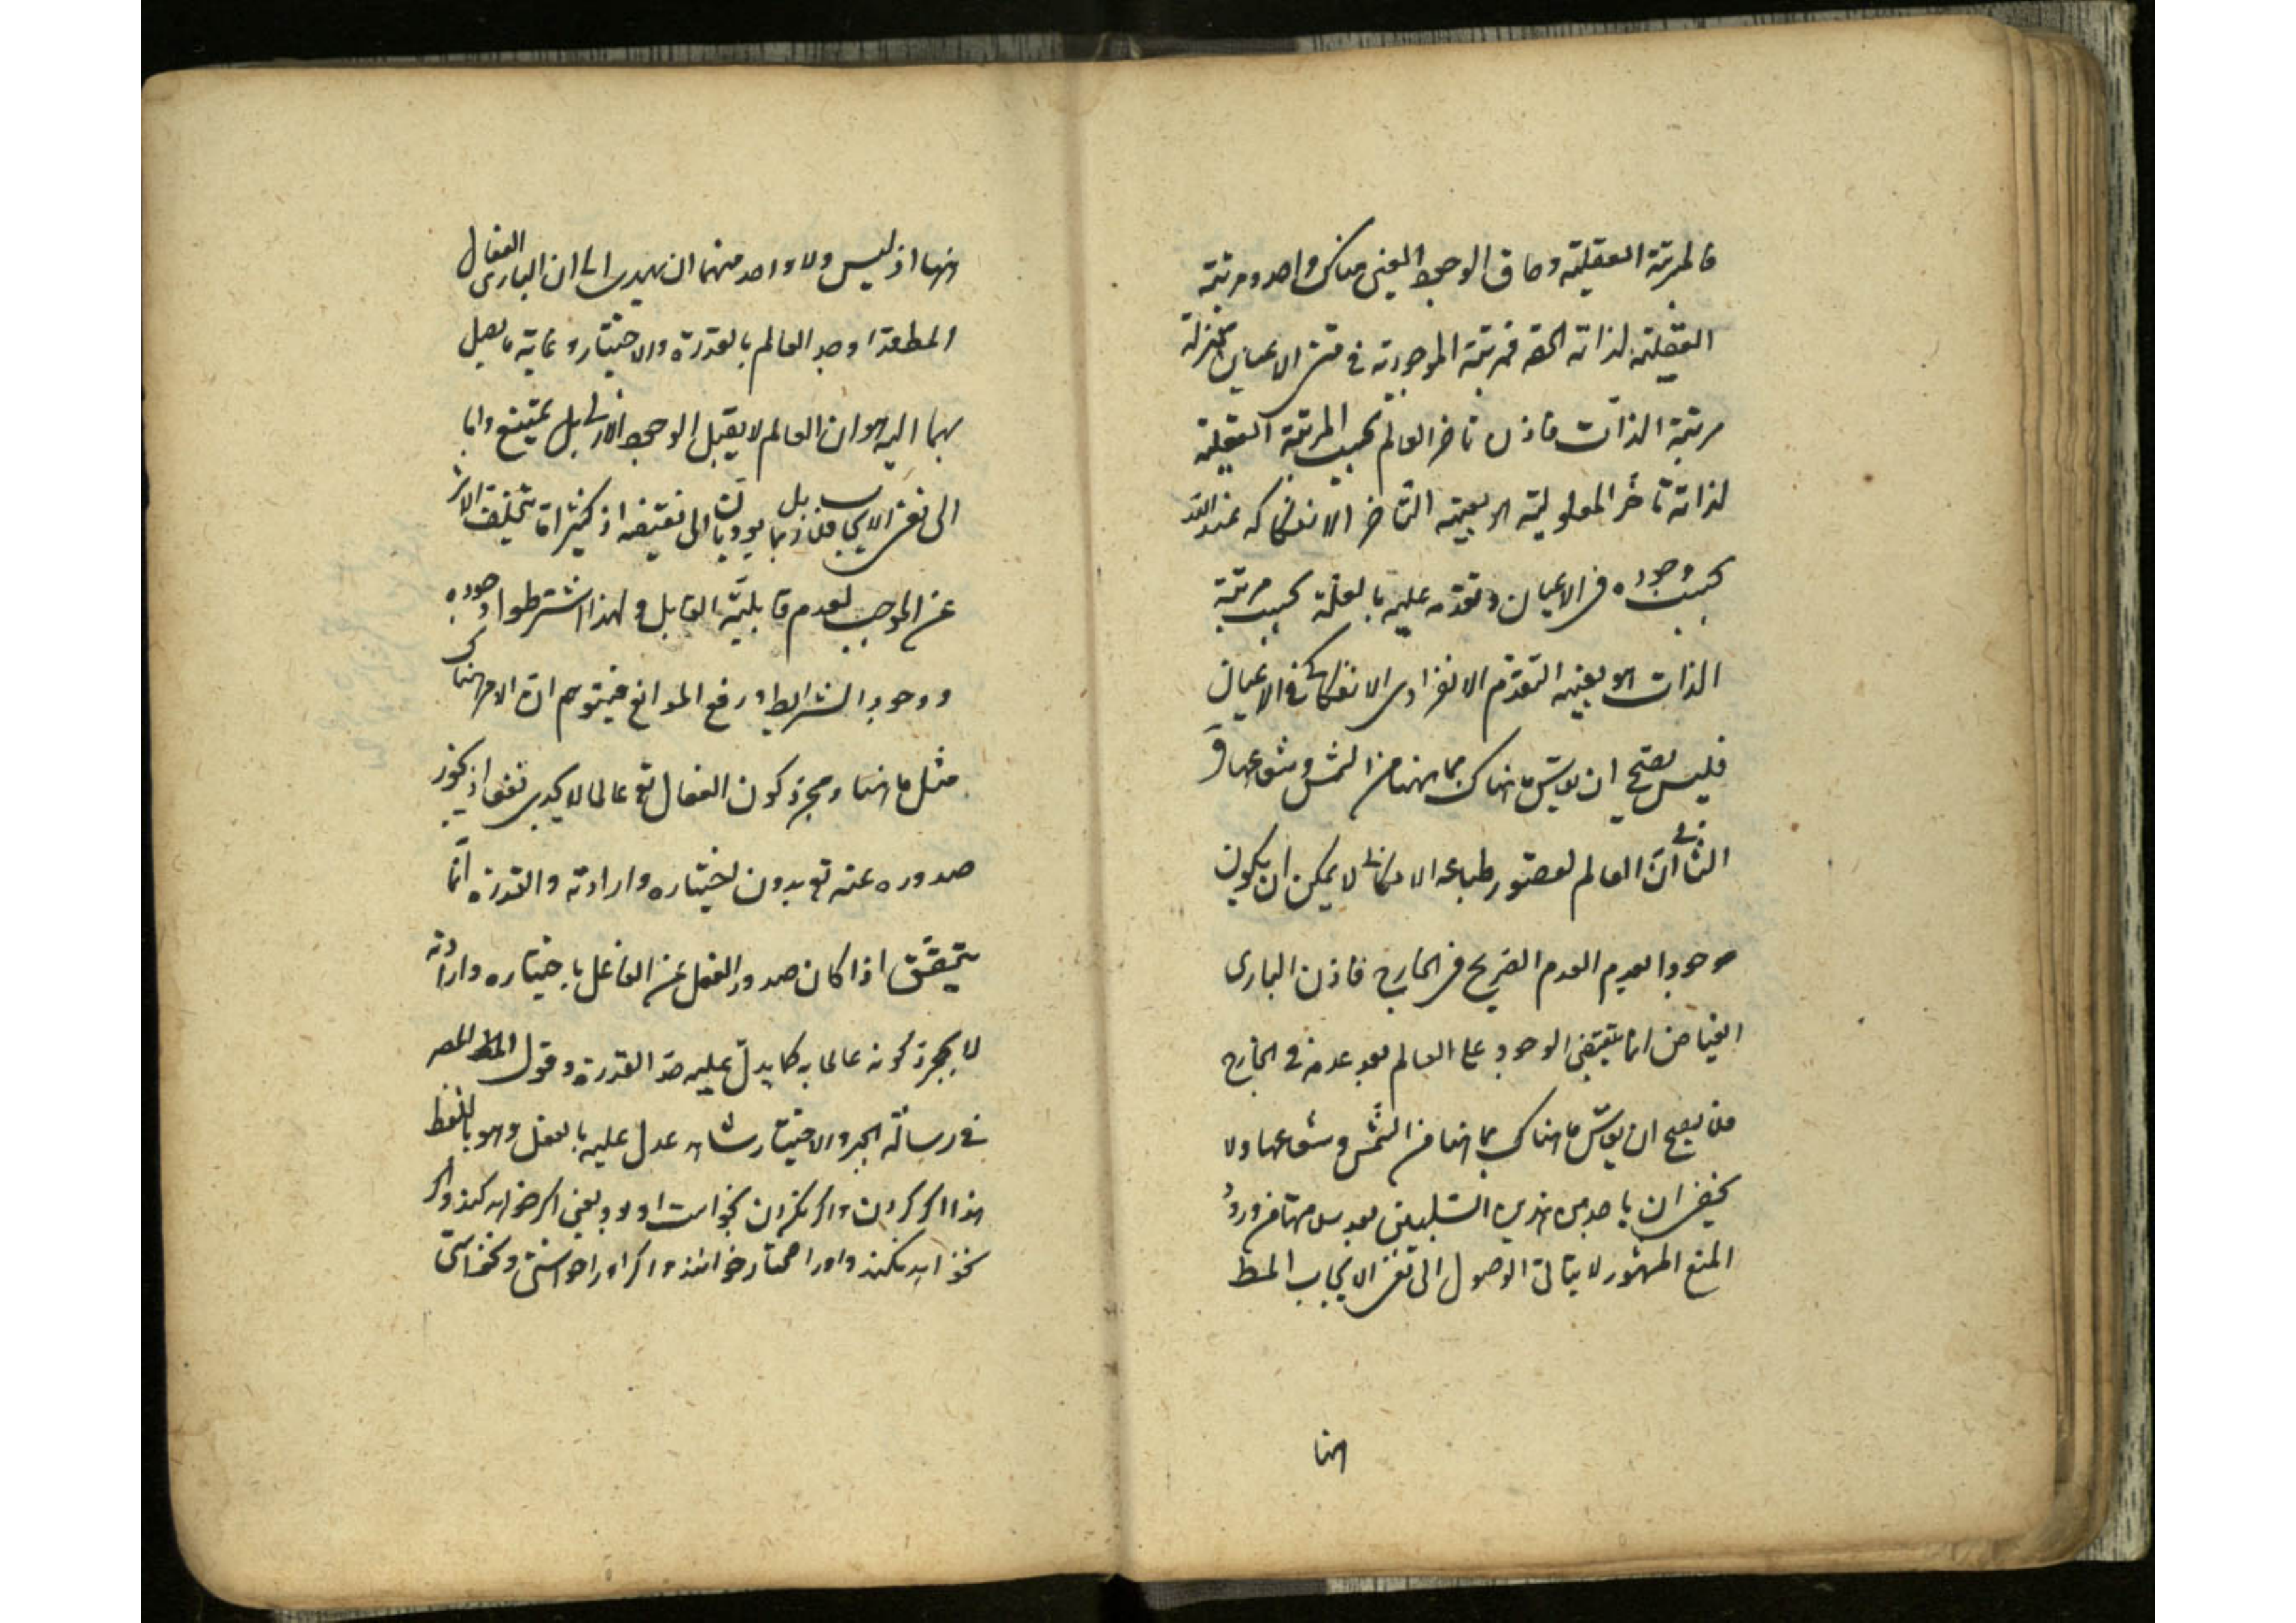 فالمرتبة العقلية وحاق الوجود العيني هناك واحد ومرتبة
العقلية لذاته الحقه فمرتبة الموجودية في متن الاعيان بمنزلة
مرتبة الذات فاذن تاخر العالم بحسب المرتبة العقلية
لذاته تاخر المعلولية هو بعينه التاخر الانفكاكي عنه
بحسب وجوده في الاعيان وتقدمه عليه بالعلية بحسب مرتبة
الذات هو بعينه التقدم الانفرادي الانفكاكي في الاعيان
فليس يصح ان يقاس ما هناك بما ههنا من الشمس وشعاعها و
الثاني ان العالم لقصور طباعه الامكاني لا يمكن ان يكون
موجودا بعدم العدم الصريح في الخارج فاذن الباري
الفياض انما يقتضي الوجود على العالم بعد عدمه في الخارج
فلا يصح ان يقاس ما هناك بما هنا من الشمس وشعاعها ولا
يخفى ان باحد من هذين السبيلين بعد سلامتهما من ورود
المنع المشهور لا يتاتى الوصول الى نفي الايجاب المط
هنا
ههنا اذ ليس ولا واحد منهما ان يهدي الى ان الباري الفعال
المط قد اوجد العالم بالقدرة والاختيار وغاية ما يصل
بهما اليه هو ان العالم لا يقبل الوجود الازلي بل يمتنع واما
الى نفي الايجاب فلا بل ربما يوديان الى نقيضه اذ كثيرا ما يتخلف الاثر
عن الموجب لعدم قابلية القابل ولهذا اشترطوا وجوده
ووجود الشرايط ورفع الموانع فيتوهم ان الامر هناك
مثل ما هنا ومجرد كون الفعال تع عالما لا يجدي نفعا اذ يجوز
صدوره عنه تع بدون اختياره وارادته والقدرة انما
يتحقق اذا كان صدور الفعل عن الفاعل باختياره وارادته
لا بمجرد كونه عالما به كما يدل عليه حد القدرة وقول المط المصر
في رسالة الجبر والاختيار شاهد عدل عليه بالعقل وهو باللفظ
هذا اگر كردن واگر نكردن بخواست او بود يعني اگر خواهد كند واگر
نخواهد نكند واورا مختار خوانند واگر اورا خواستن ونخواستن